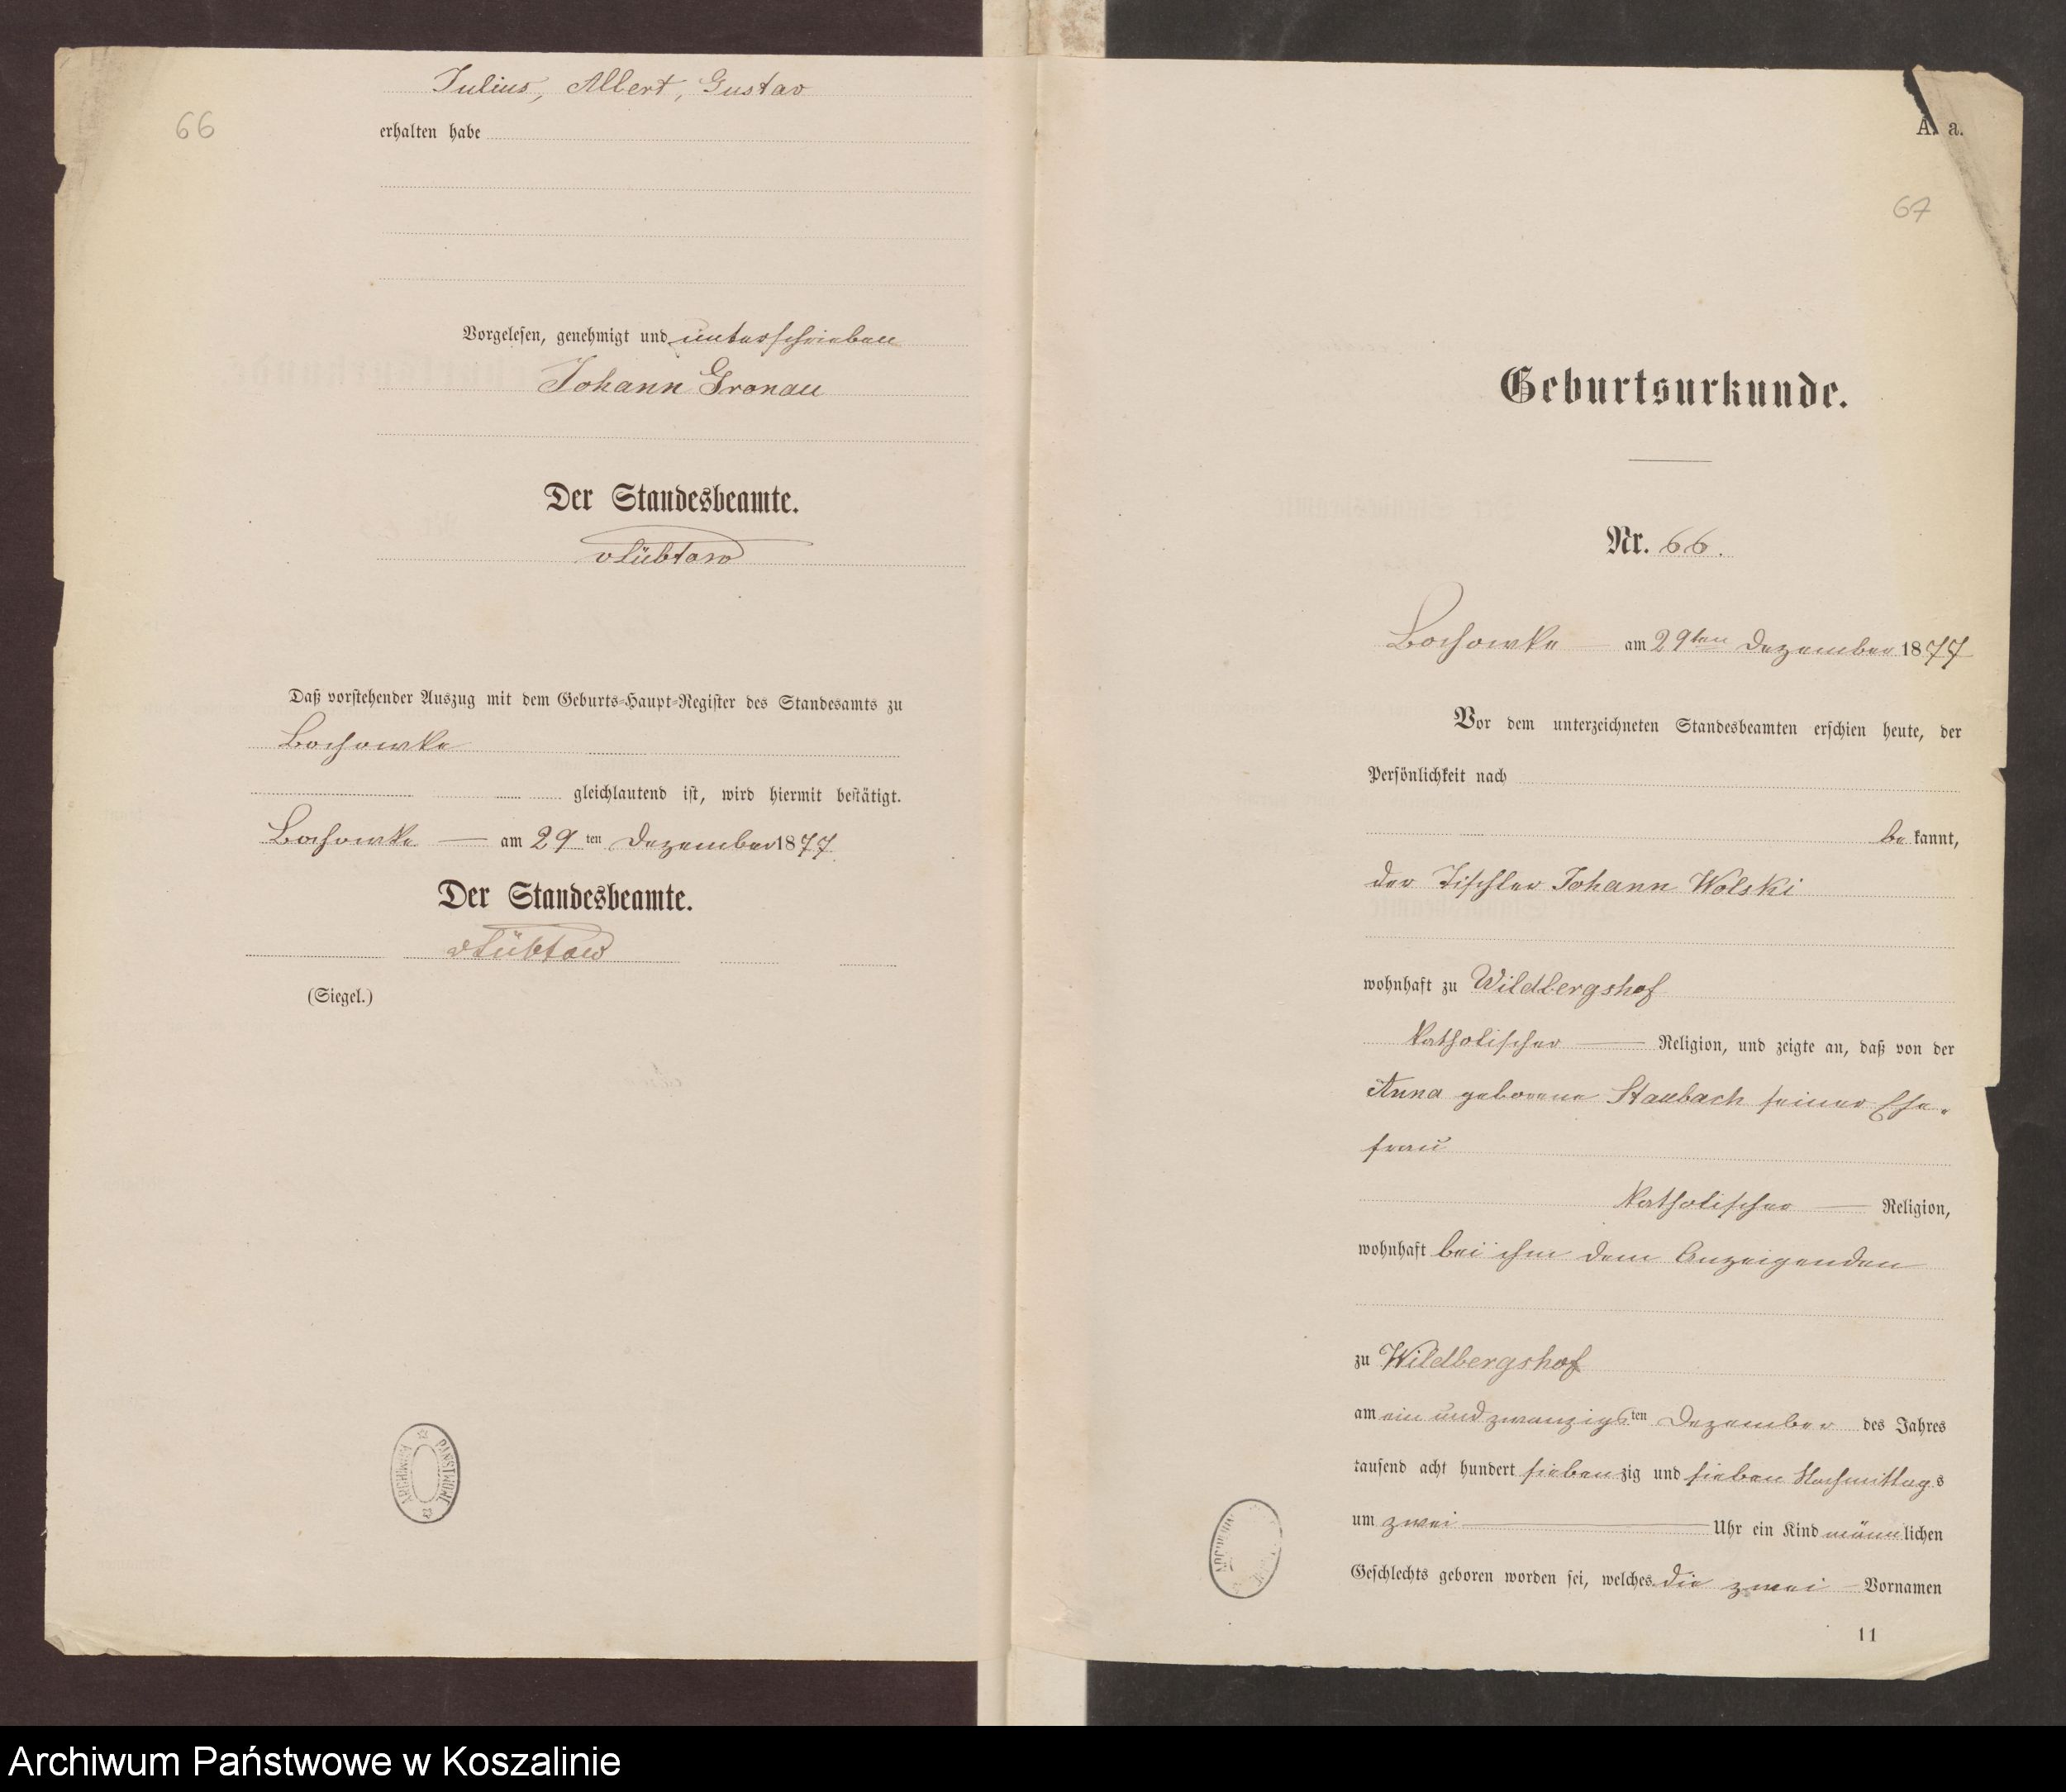 66
Julius, Albert, Gustav
erhalten habe
Vorgelesen, genehmigt und unterschrieben
Johann Gronau
Der Standesbeamte.
vLübtow
Daß vorstehender Auszug mit dem Geburts-Haupt-Register des Standesamts zu
Bochowke
gleichlautend ist, wird hiermit bestätigt.
Bochowke — am 29ten Dezember 1877
Der Standesbeamte.
vLübtow
(Siegel.)
ARCHIWUM PAŃSTWOWE
A. a.
67
Geburtsurkunde.
Nr. 66.
Bochowke — am 29ten Dezember 1877
Vor dem unterzeichneten Standesbeamten erschien heute, der
Persönlichkeit nach
be kannt,
der Tischler Johann Wolski
wohnhaft zu Wildbergshof
katholischer — Religion, und zeigte an, daß von der
Anna geborene Staubach seiner Ehe-
frau
katholischer — Religion,
wohnhaft bei ihm dem Anzeigenden
zu Wildbergshof
am ein und zwanzigsten Dezember des Jahres
tausend acht hundert siebenzig und sieben Nachmittags
um zwei — Uhr ein Kind männlichen
Geschlechts geboren worden sei, welches die zwei — Vornamen
11
Archiwum Państwowe w Koszalinie